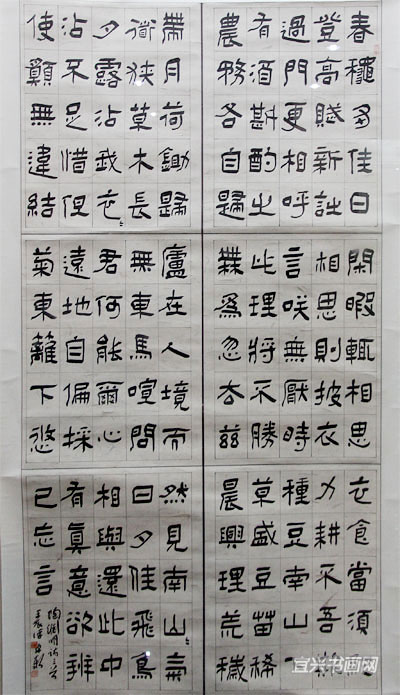 春穐多佳日
登高賦新詩
過門更相呼
有酒斟酌之
農務各自歸
閑暇輒相思
相思則披衣
言咲無厭時
此理將不勝
橆為忽去茲
衣食當須
力耕不吾
種豆南山
草盛豆苗稀
晨興理荒穢
帶月荷鋤歸
道狹草木長
夕露沾我衣〻
沾不足惜但
使願無違結
廬在人境而
無車馬喧問
君何能爾心
遠地自偏採
菊東籬下悠
然見南山〻氣
日夕佳飛鳥
相與還此中
有真意欲辨
已忘言
陶淵明詩三首
宜兴书画网